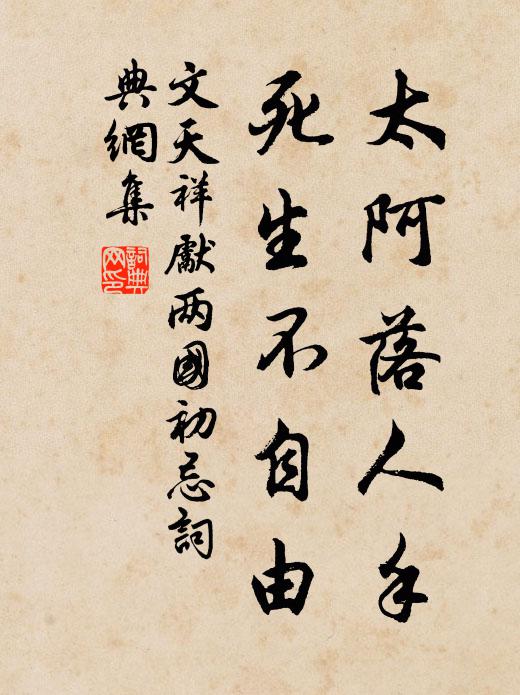 太阿落人手
死生不自由
文天祥獻两國初忌詞
典網集
詞典
网印